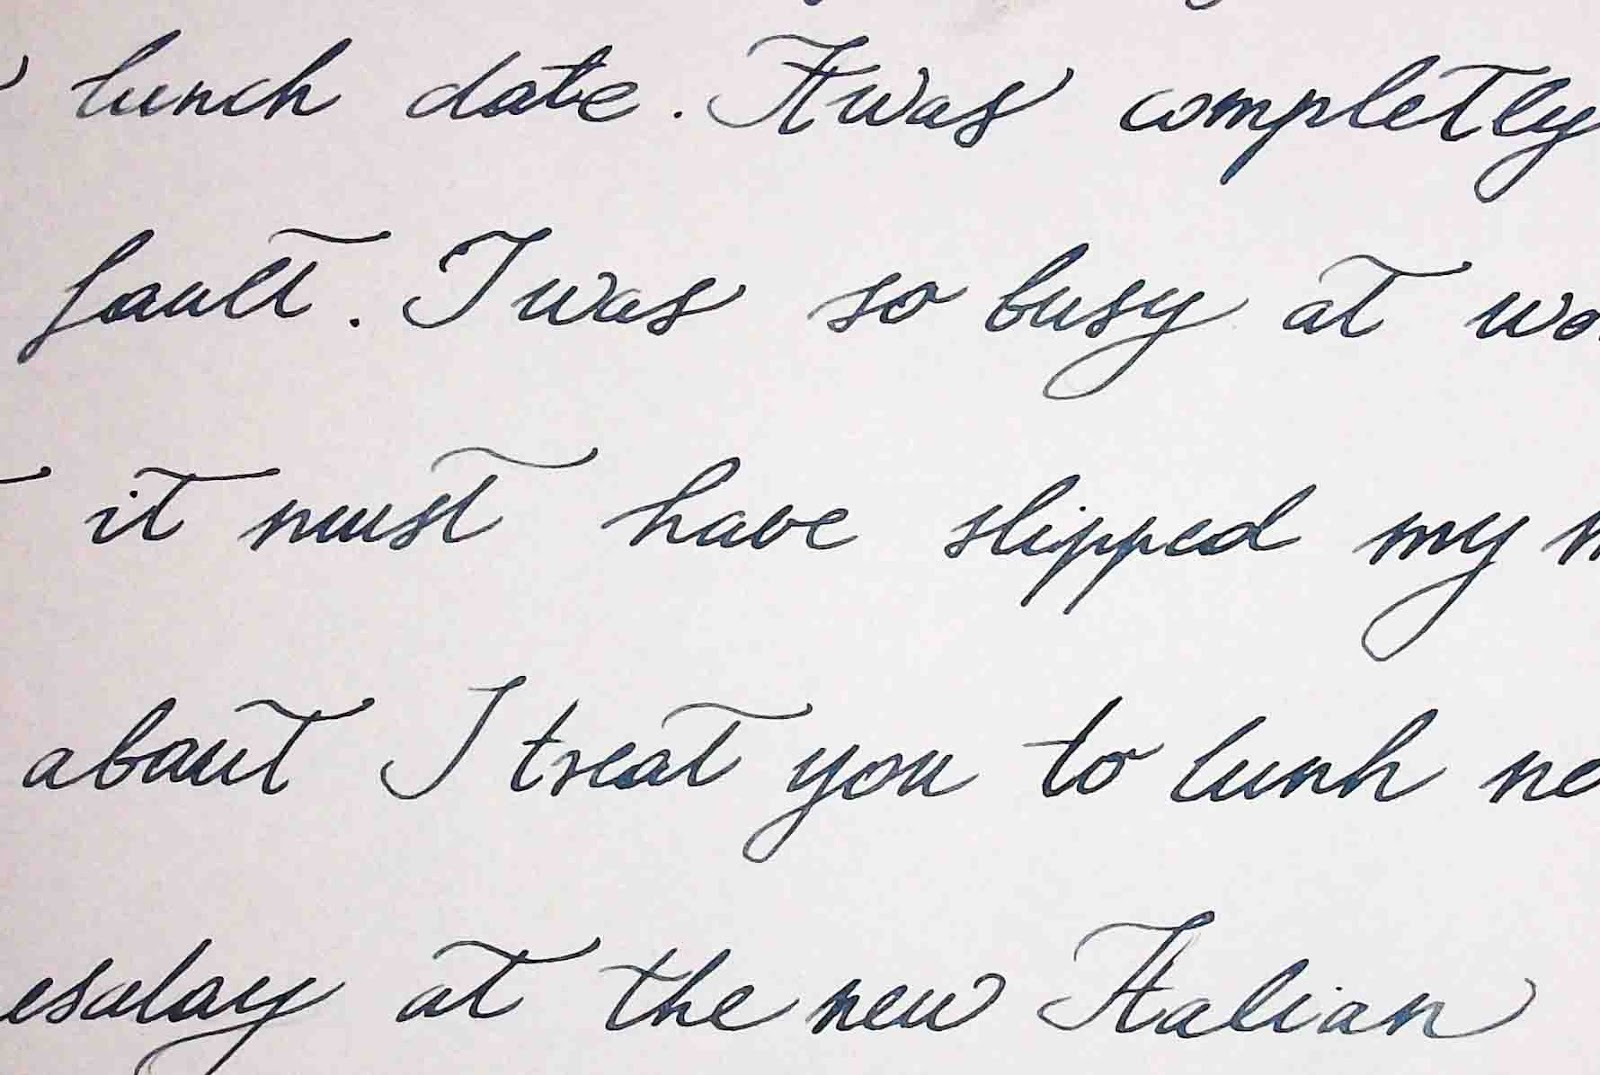 lunch date. It was completly
fault. I was so busy at wo
it must have slipped my
about I treat you to lunh ne
esday at the new Italian